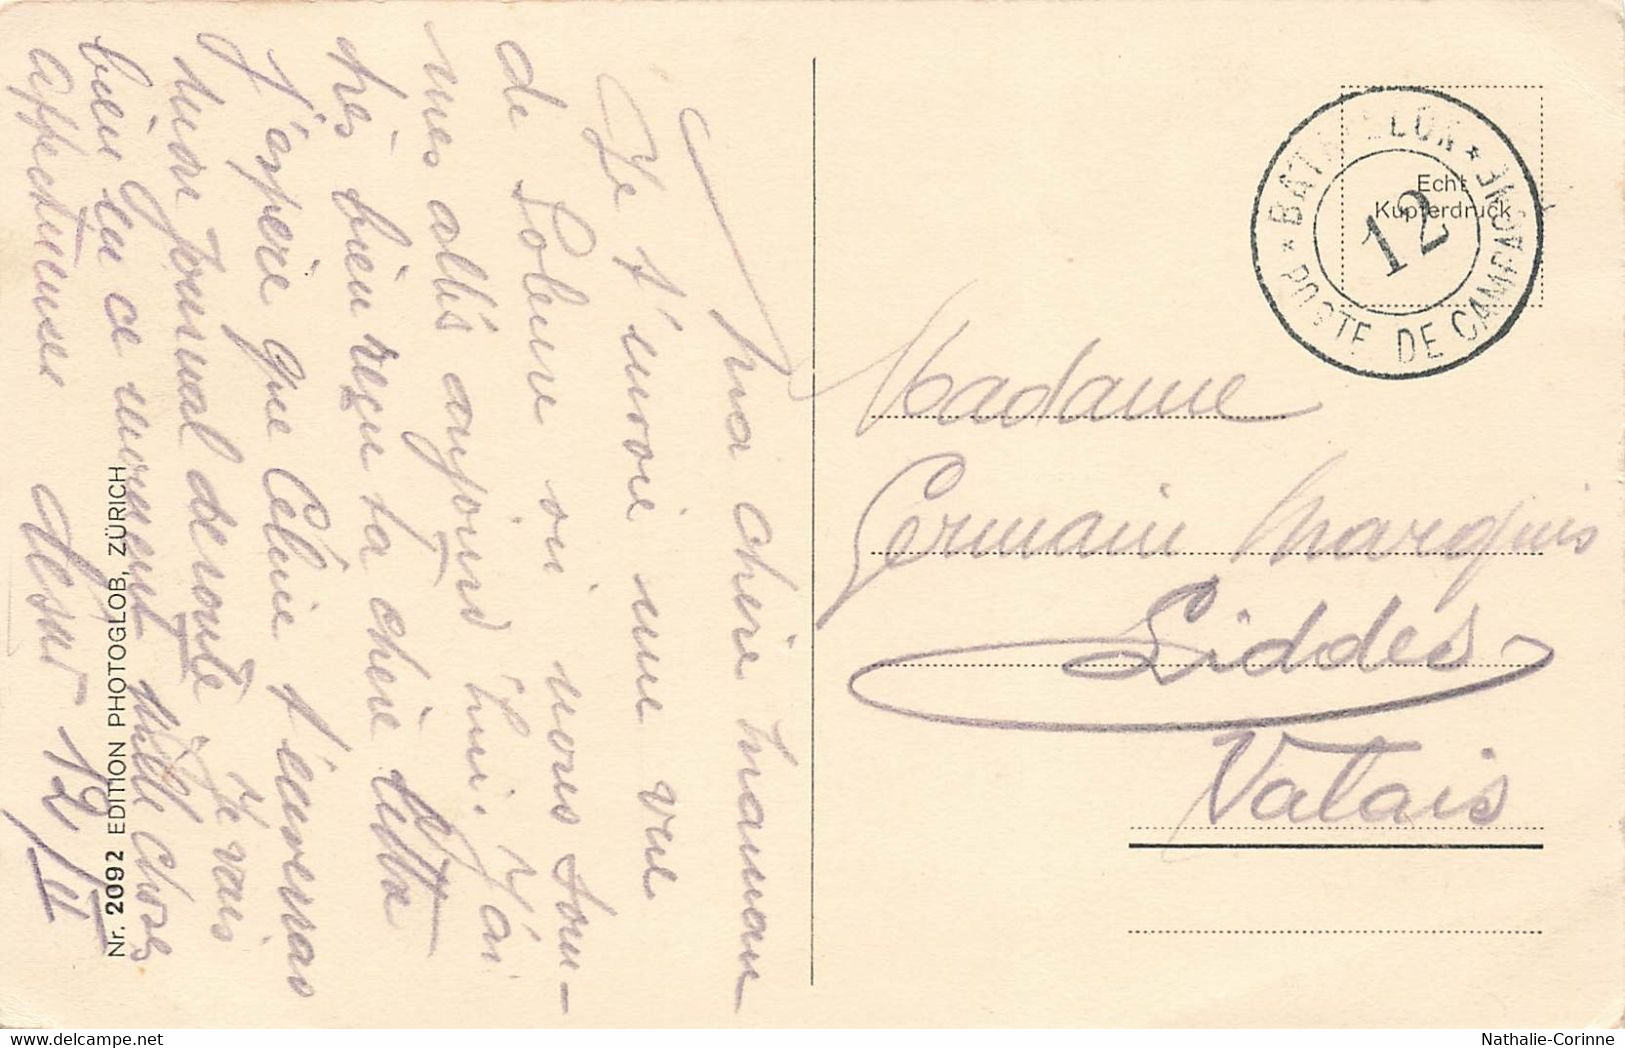 Ma chère Maman
Je t'envoie une vue
de Soleure où nous som-
mes allés aujourd'hui. J'ai
très bien reçu ta chère lettre
J'espère que Céline t'écrivais
mon journal de route Je vais
bien en ce moment Mille choses
affectueuses 12/II
Madame
Germain Marquis
Liddes
Valais
BATAILLON * 12 * POSTE DE CAMPAGNE
Echt
Kupferdruck
Nr. 2092 EDITION PHOTOGLOB, ZÜRICH
https://www.delcampe.net
Nathalie-Corinne